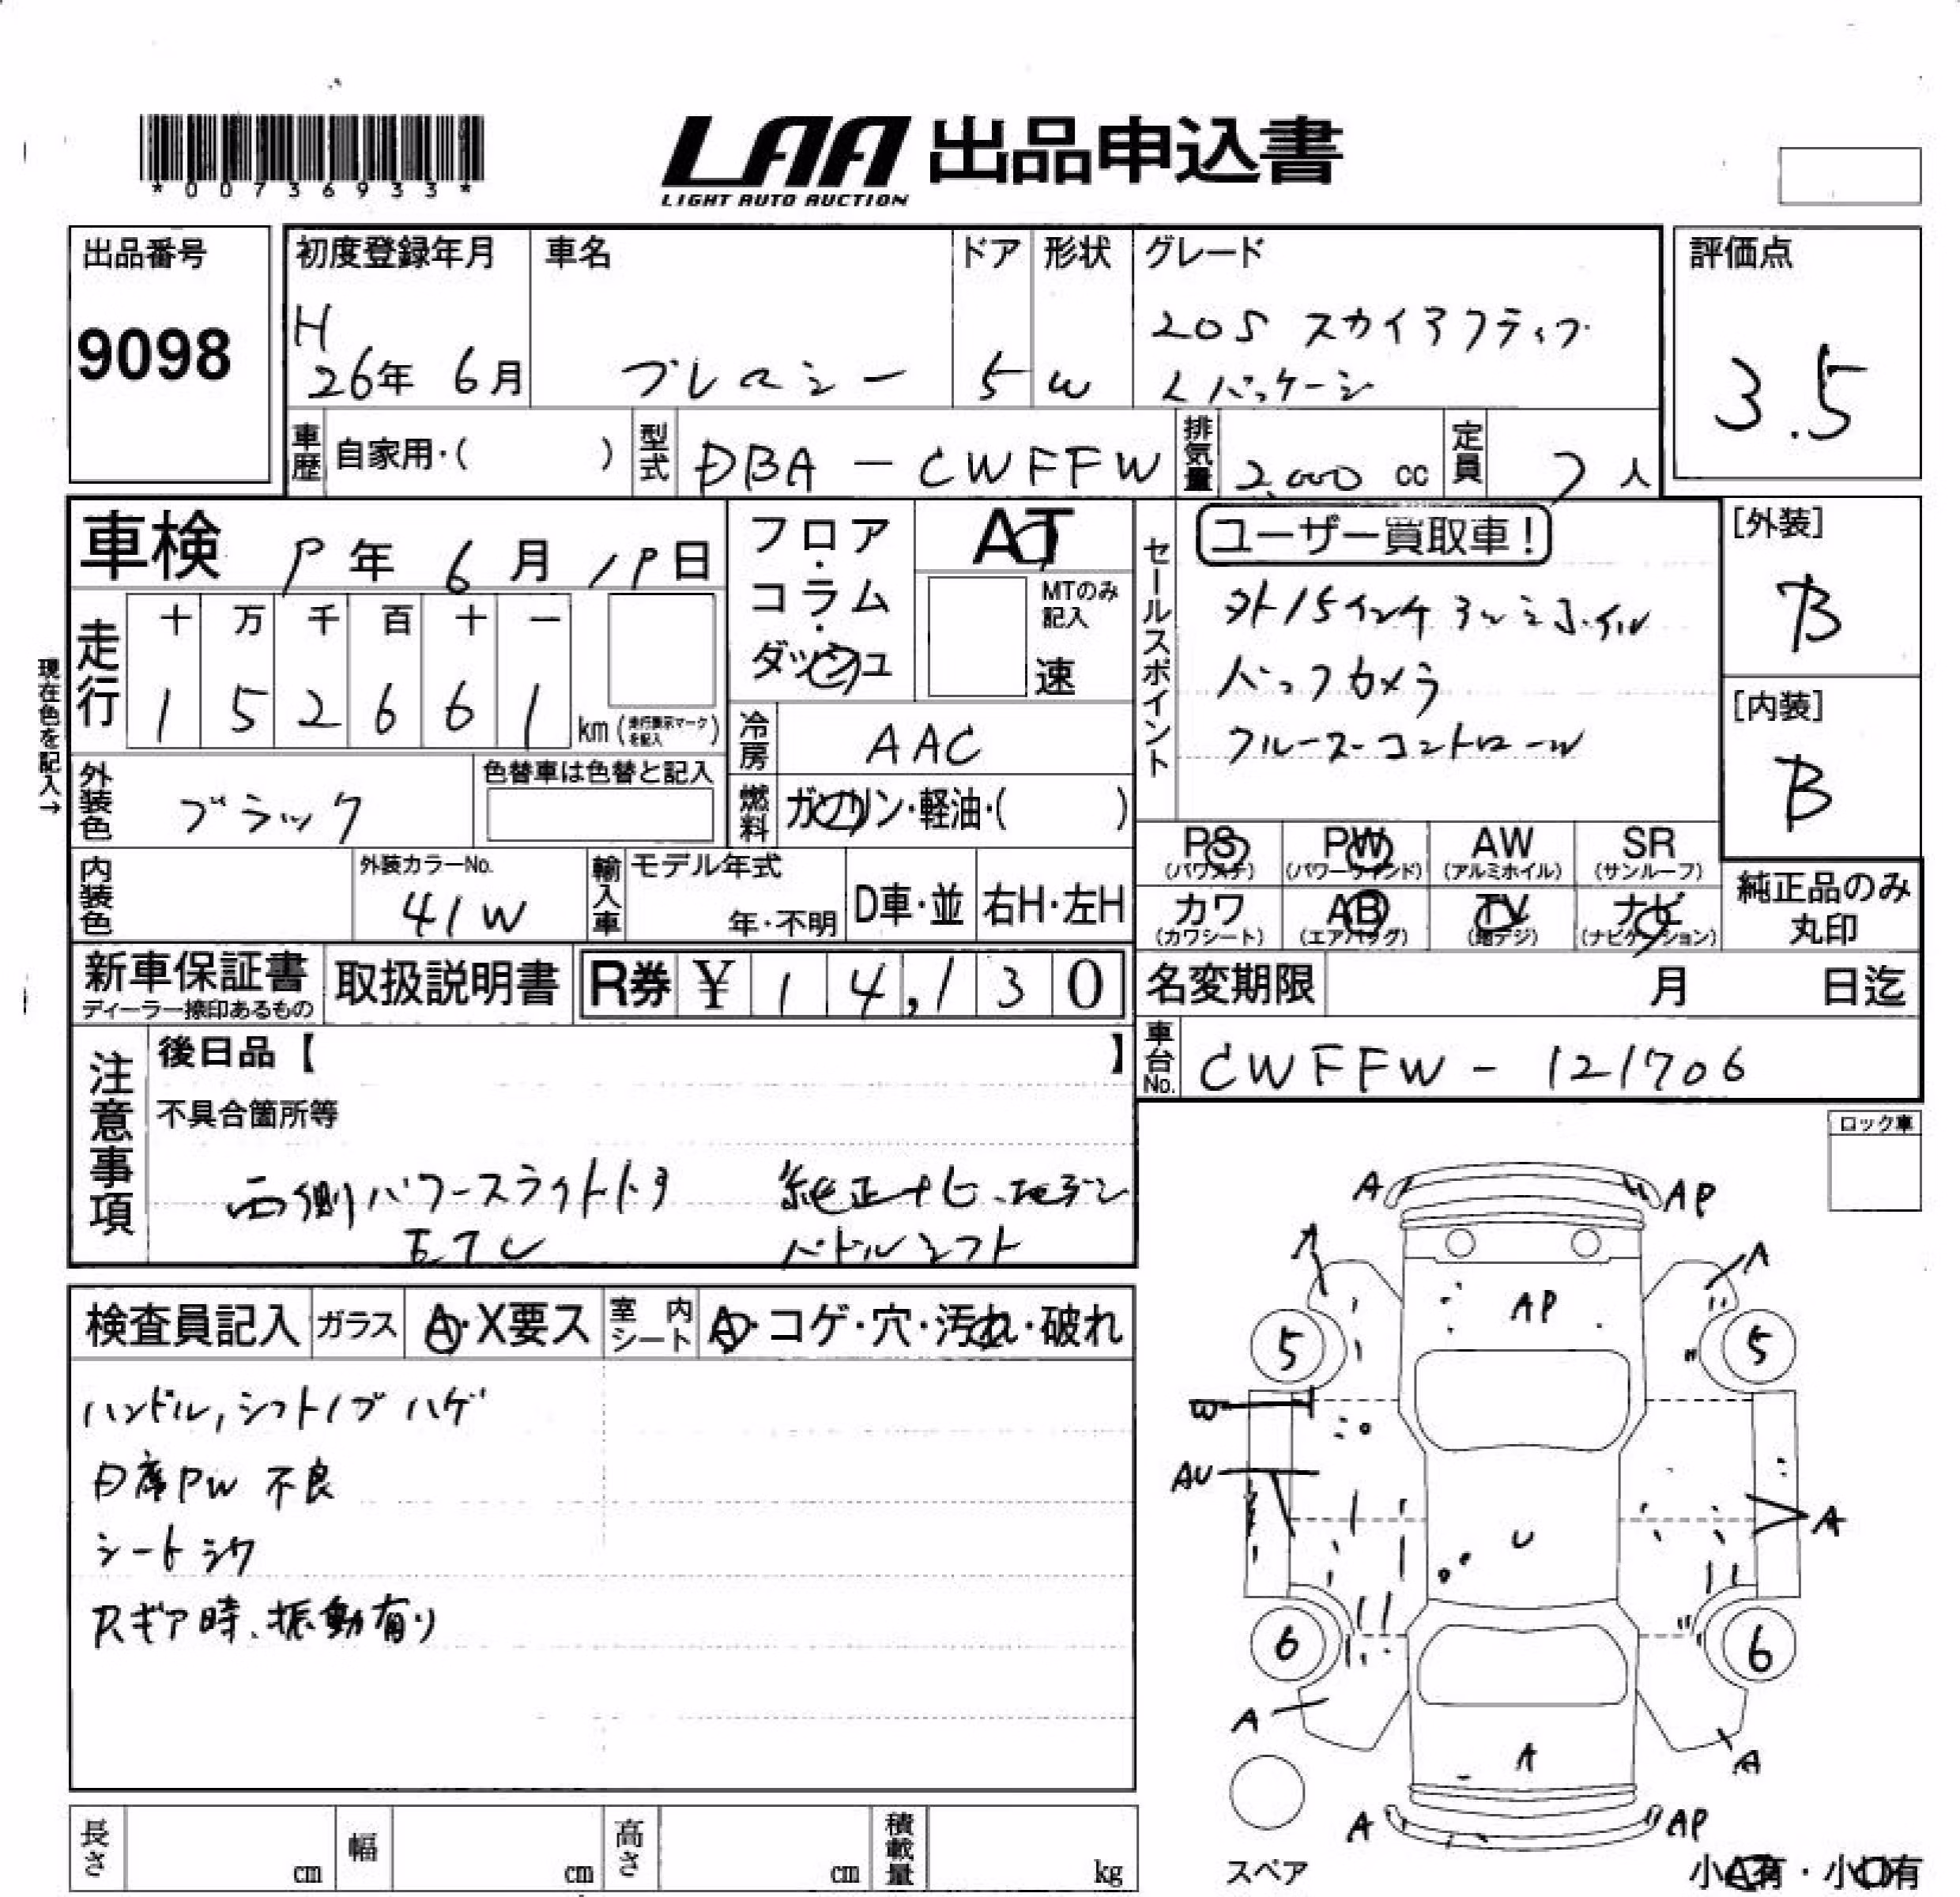 *00736933*
LAA 出品申込書
LIGHT AUTO AUCTION
出品番号
9098
初度登録年月
H
26年 6月
車名
プレマシー
ドア
5
形状
W
グレード
20S スカイアクティブ
Lパッケージ
評価点
3.5
車歴 自家用・( )
型式 DBA - CWFFW
排気量 2,000 cc
定員 7人
車検 P年 6月 19日
フロア・コラム・ダッシュ
AT
MTのみ記入
速
現在色を記入→
走行
十 万 千 百 十 一
1 5 2 6 6 1
km (走行表示マークを記入)
冷房 AAC
燃料 ガソリン・軽油・( )
外装色 ブラック
色替車は色替と記入
内装色
外装カラーNo.
41W
輸入車
モデル年式
年・不明
D車・並
右H・左H
セールスポイント
ユーザー買取車!
外15インチアルミホイル
バックカメラ
クルーズコントロール
[外装]
B
[内装]
B
PS (パワステ)
PW (パワーウインド)
AW (アルミホイル)
SR (サンルーフ)
カワ (カワシート)
AB (エアバッグ)
TV (地デジ)
ナビ (ナビゲーション)
純正品のみ丸印
新車保証書
ディーラー捺印あるもの
取扱説明書
R券 ¥14,130
名変期限 月 日迄
車台No. CWFFW - 121706
注意事項
後日品【 】
不具合箇所等
両側パワースライドドア 純正ナビ、地デジ
ETC パドルシフト
ロック車
検査員記入
ガラス A・X要ス
室内シート A・コゲ・穴・汚れ・破れ
ハンドル,シフトノブ ハゲ
D席PW 不良
シートシワ
Rギア時、振動有り
A AP
A A
AP
5 5
W
AU
A
U
6 6
A
A
A
A AP
スペア
小A有・小U有
長さ cm
幅 cm
高さ cm
積載量 kg